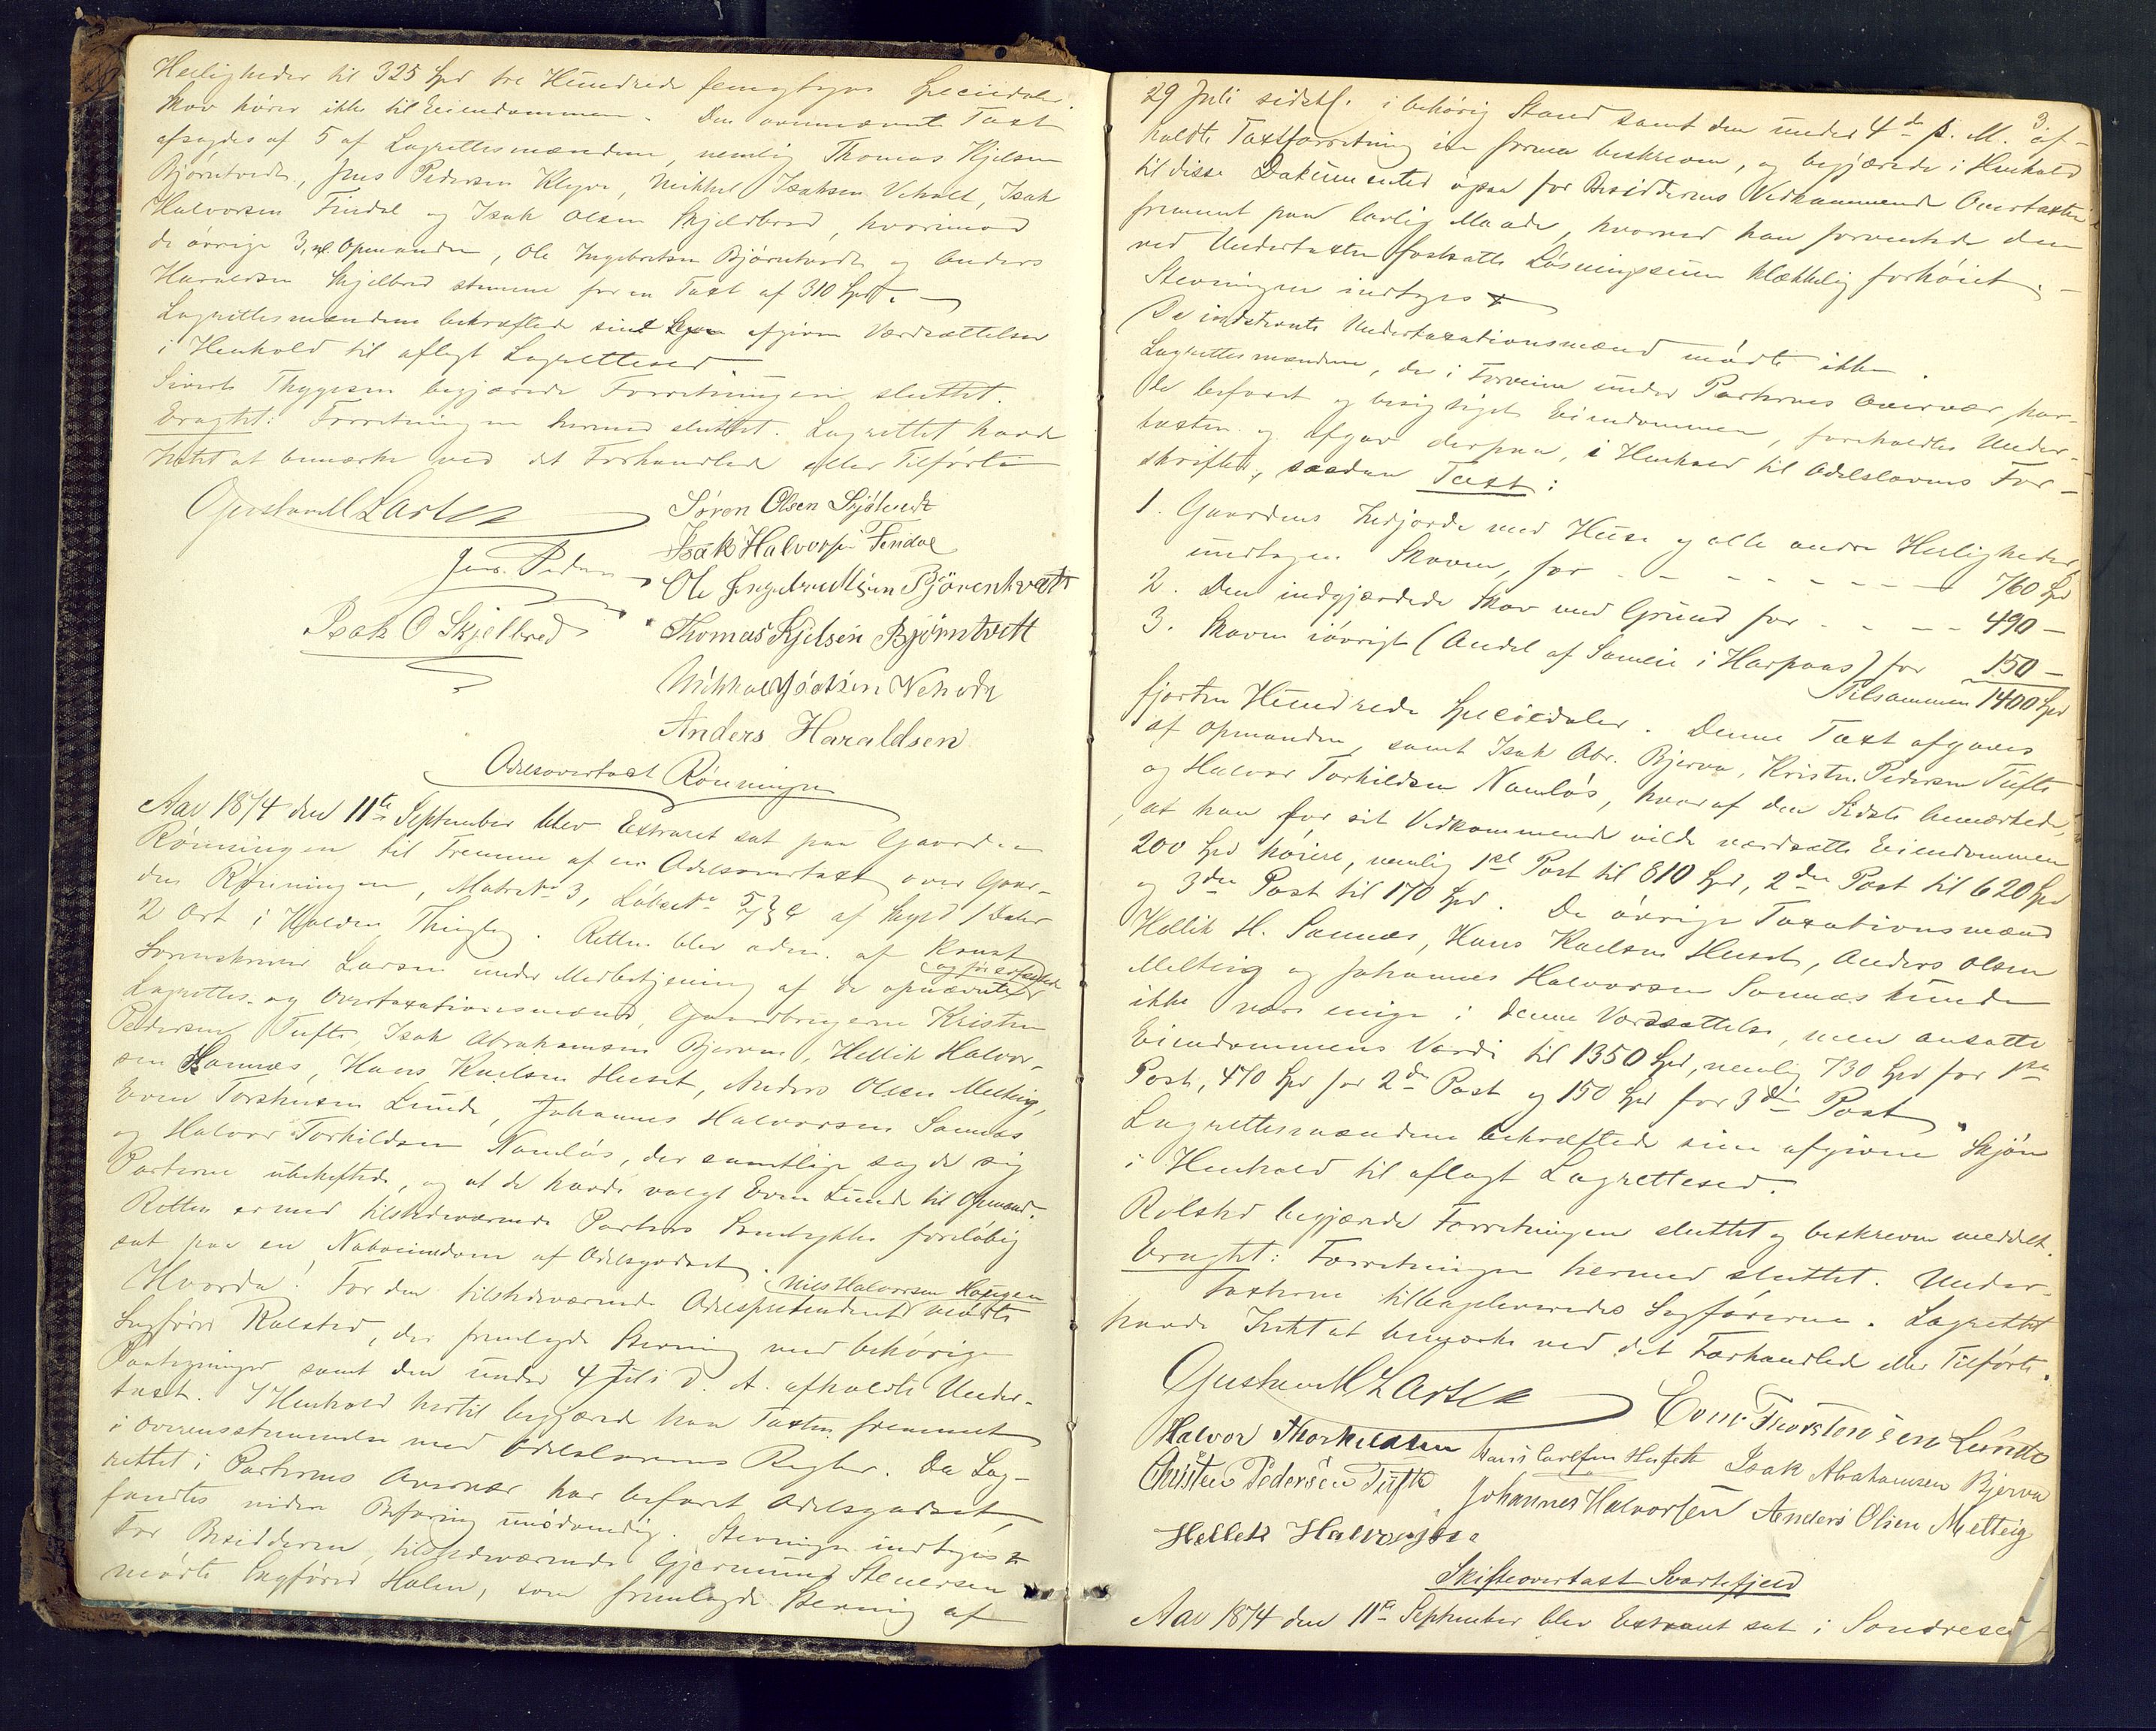 Herligheder til 325 Spd tre Hundrede femogtyve Speciedaler.
Skov hører ikke til Eiendommen. Den ovennævnte Taxt
afsagdes af 5 af Lagrettesmændene, nemlig Thomas Kjelsen
Bjørntvedt, Jens Pedersen Klyve, Mikkel Isaksen Veholt, Isak
Halvorsen Findal og Isak Olsen Skjelbred, hvorimod
de øvrige 3, nl. Opmanden, Ole Ingebretsen Bjørntvedt og Anders
Haraldsen Skjelbred stemme for en Taxt af 310 Spd. —
Lagrettesmændene bekræftede sin afgivne Værdsættelse
i Henhold til aflagt Lagrettesed —
Sivert Thygesen begjærede Forretningen sluttet.
Eragtet: Forretningen hermed sluttet. Lagrettet havde
Intet at bemærke ved det Forhandlede eller Tilførte
Gjerstad Larsen Søren Olsen
Jens Peder Isak Halvorsen Findal
Ole Ingebretsen Bjørentvedt
Isak O Skjelbred Thomas Kjelsen Bjørntvett
Mikkel Isaksen Veholt
Anders Haraldsen
Odelsovertaxt Rønningen
Aar 1874 den 11te September blev Extraret sat paa Gaarden
Rønningen til Fremme af en Odelsovertaxt over Gaar-
den Rønningen, Matr No 3, Løbe No 5 af Skyld 1 Daler
2 Ort i Holden Thinglag. Retten blev adm. af Const
Sorenskriver Larsen under Medbetjening af de opnævnte og fremmødte
Lagrettes- og Overtaxationsmænd, Gaardbrugerne Kristen
Pedersen Tufte, Isak Abrahamsen Bjerva, Hellik Halvor-
sen Sannæs, Hans Karlsen Huset, Anders Olsen Melteig,
Even Torstensen Lunde, Johannes Halvorsen Sannæs
og Halvor Torkildsen Namløs, der samtlige sagde sig
Parterne ubeheftede, og at de havde valgt Even Lunde til Opmand.
Retten er med tilstedeværende Parters Samtykke foreløbig
sat paa en Naboeiendom af Odelsgodset.
Hvorda! For den tilstedeværende Odelsprætendent Nils Halvorsen Haugen mødte
Sagfører Rolsted, der fremlagde Stevning med behørige
Paategninger samt den under 4 Juli d. A. afholdte Under-
taxt. I Henhold hertil begjærede han Taxten fremmet
i Overensstemmelse med Odelslovens Regler. Da Lag-
rettet i Parternes Overvær har befaret Odelsgodset,
fandtes videre Befaring unødvendig. Stevningen indtages ×
For Besidderen, tilstedeværende Gjermund Stenersen
mødte Sagfører Holm, som fremlagde Stevning af
3.
29 Juli sidstl. i behørig Stand samt den under 4de s. M. af-
holdte Taxtforretning in forma beskreven, og begjærede i Henhold
til disse Dokumenter ogsaa for Besidderens Vedkommende Overtaxten
fremmet paa lovlig Maade, hvorved han forventede den
ved Undertaxten fastsatte Løsningssum klækkelig forhøiet. —
Stevningen indtages ×
De indstevnte Undertaxationsmænd mødte ikke.
Lagrettesmændene, der i Forveien under Parternes Overvær hav-
de befaret og besigtiget Eiendommen, foreholdtes Under-
taxten og afgav derpaa, i Henhold til Odelslovens For-
skrifter, saadan Taxt:
1. Gaardens Indjorde med Huse og alle andre Herligheder,
undtagen Skoven, for - - - - - - - - 760 Spd
2. Den indgjærdede Skov med Grund for - - - - 490 —
3. Skoven iøvrigt (Andel af Sameie i Harpaas) for 150 —
Tilsammen 1400 Spd
fjorten Hundrede Speciedaler. Denne Taxt afgaves
af Opmanden, samt Isak Abr. Bjerva, Kristen Pedersen Tufte
og Halvor Torkildsen Namløs, hvoraf den Sidste bemærkede,
at han for sit Vedkommende vilde værdsætte Eiendommen
200 Spd høiere, nemlig 1ste Post til 810 Spd, 2den Post til 620 Spd
og 3die Post til 170 Spd. De øvrige Taxationsmænd
Hellik H. Sannæs, Hans Karlsen Huset, Anders Olsen
Melteig og Johannes Halvorsen Sannæs kunde
ikke være enige i denne Værdsættelse, men ansatte
Eiendommens Værdi til 1350 Spd, nemlig 730 Spd for 1ste
Post, 470 Spd for 2den Post og 150 Spd for 3die Post.
Lagrettesmændene bekræftede sine afgivne Skjøn
i Henhold til aflagt Lagrettesed.
Rolsted begjærede Forretningen sluttet og beskreven meddelt.
Eragtet: Forretningen hermed sluttet. Under-
taxterne tilbageleveredes Sagførerne. Lagrettet
havde Intet at bemærke ved det Forhandlede eller Tilførte.
Gjerstad Larsen Even Thorstensen Lunde
Halvor Thorkildsen Hans Carlsen Husett Isak Abrahamsen Bjerva
Christen Pedersen Tufte Johannes Halvorsen Anders Olsen Melteig
Hellek Halvorsen
Skifteovertaxt Svartefjeld
Aar 1874 den 11te September blev Extraret sat i Søndre